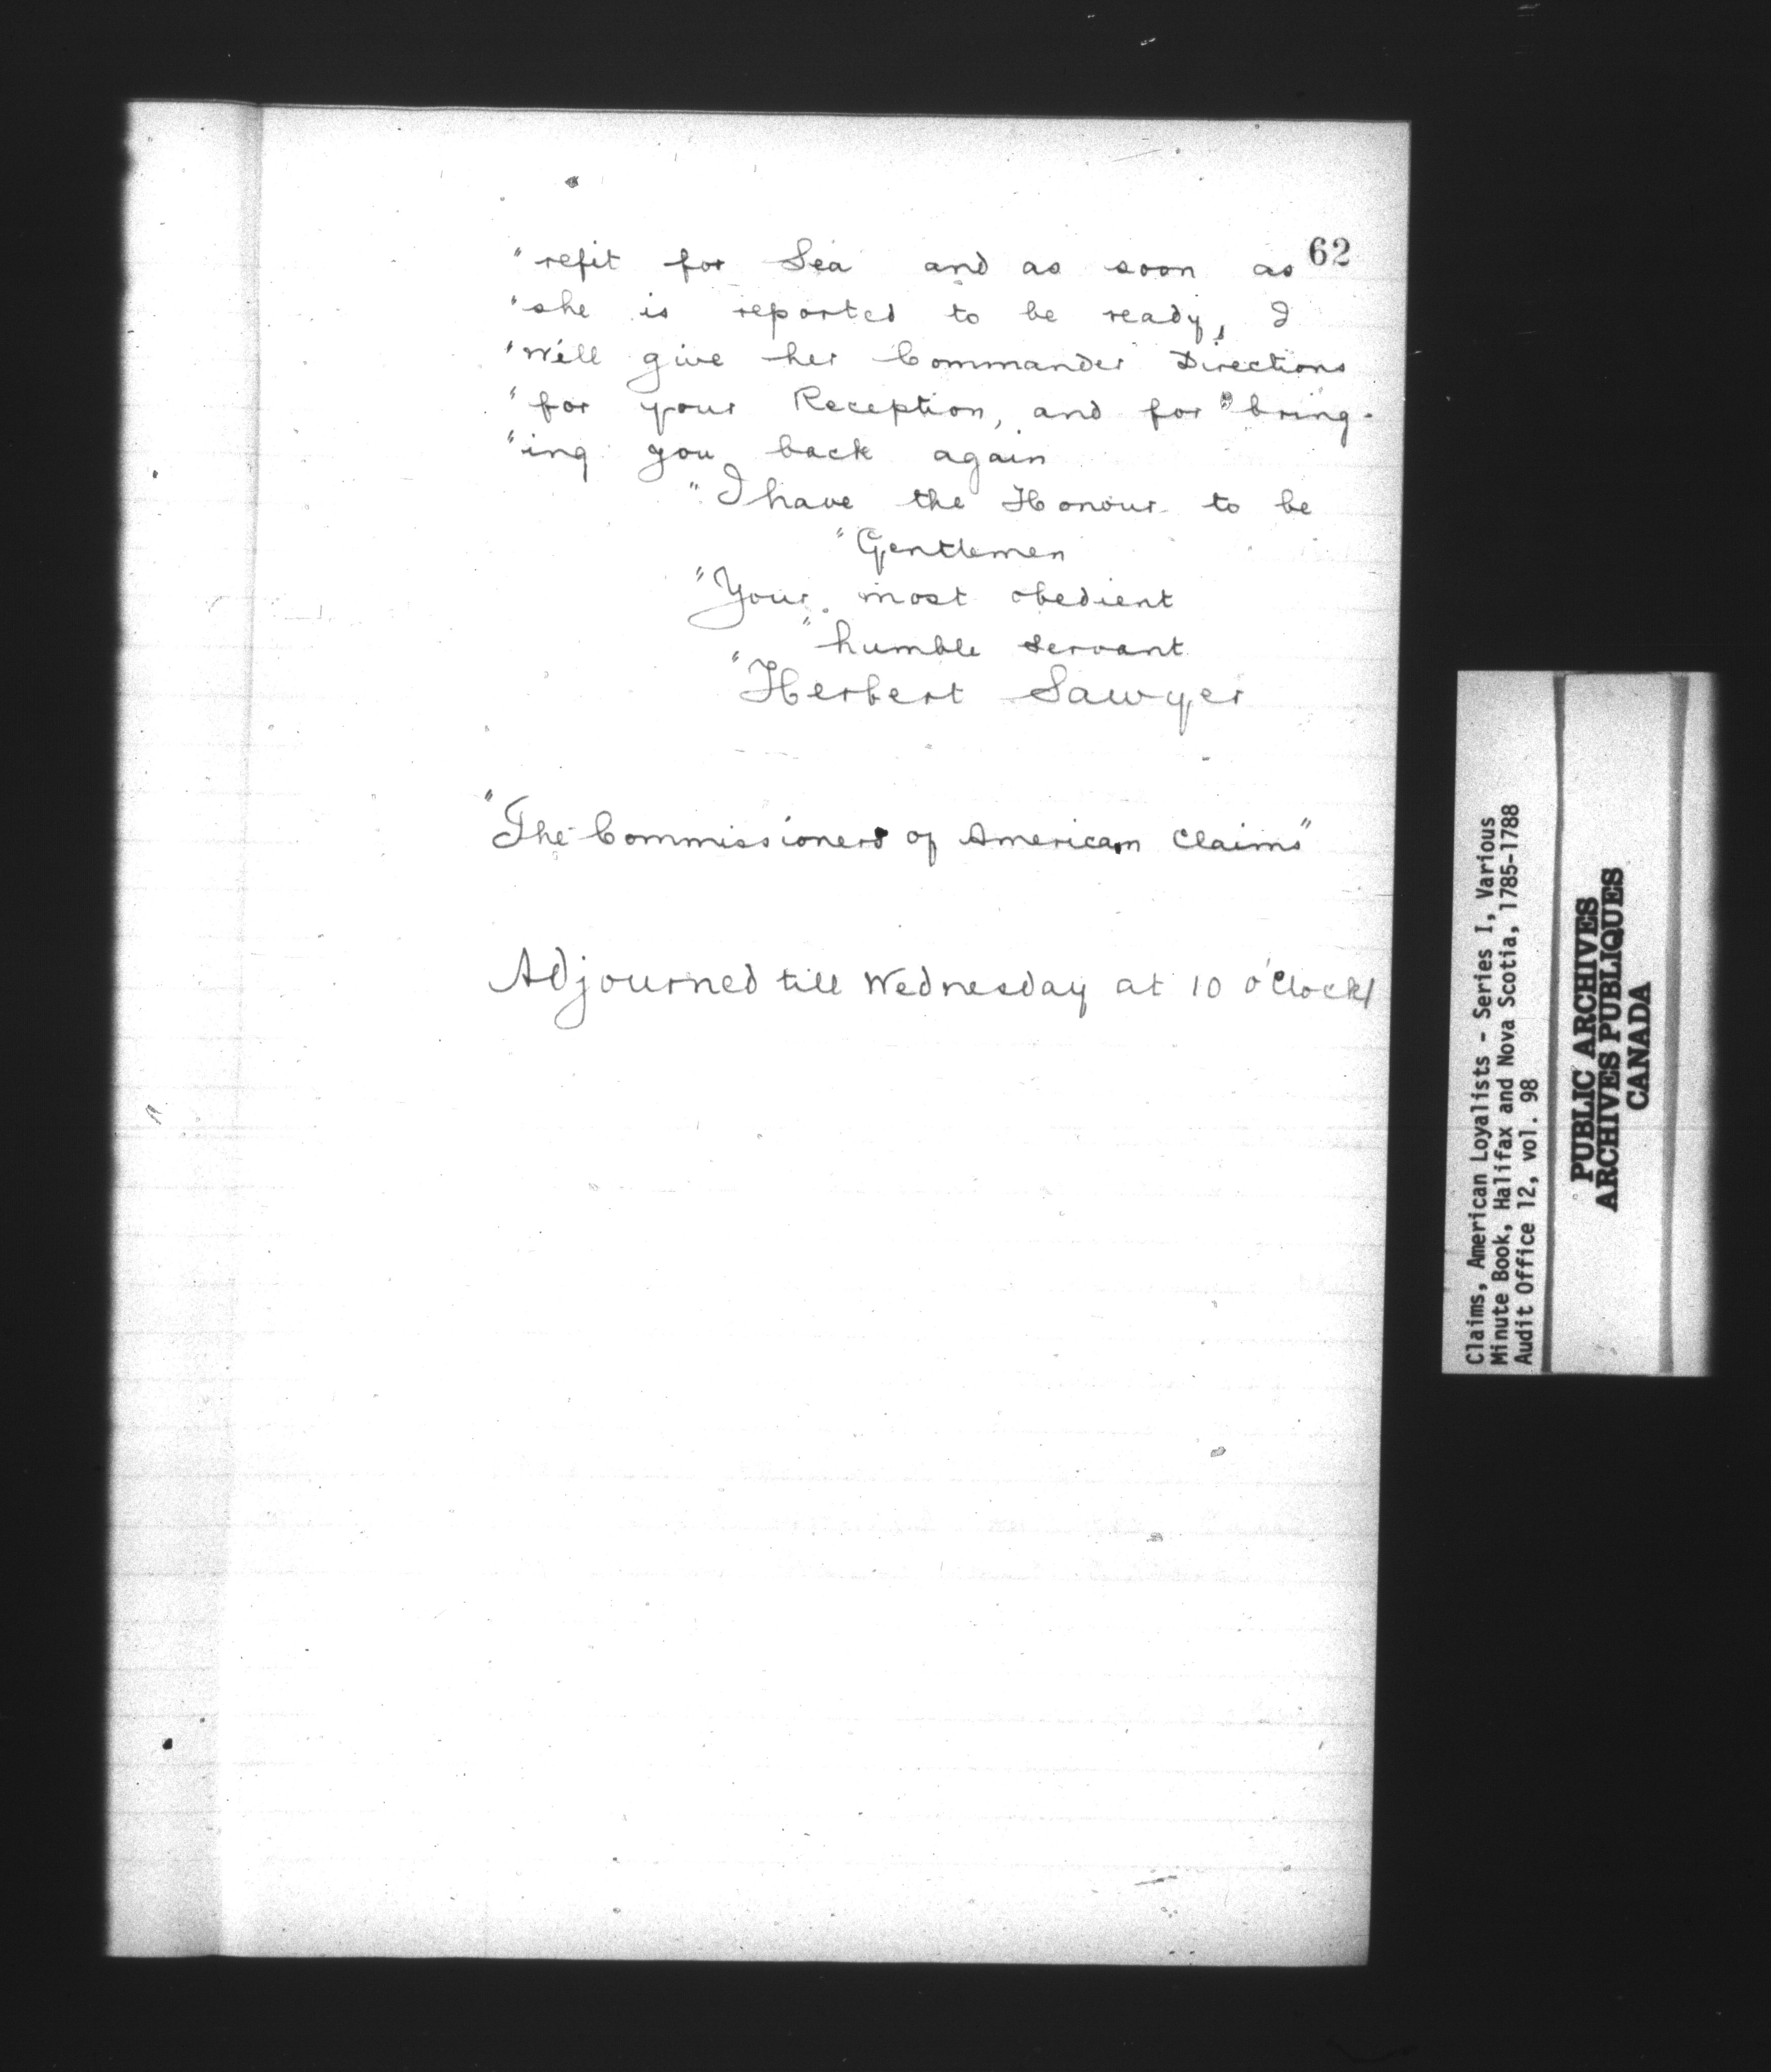 62
"refit for Sea and as soon as
"she is reported to be ready, I
"Will give her Commander Directions
"for your Reception, and for "bring-
"ing you back again
"I have the Honour to be
"Gentlemen
"Your most obedient
"humble servant
"Herbert Sawyer
"The Commissioners of American Claims"
Adjourned till Wednesday at 10 o'Clock
Claims, American Loyalists - Series I, Various
Minute Book, Halifax and Nova Scotia, 1785-1788
Audit Office 12, vol. 98
PUBLIC ARCHIVES
ARCHIVES PUBLIQUES
CANADA